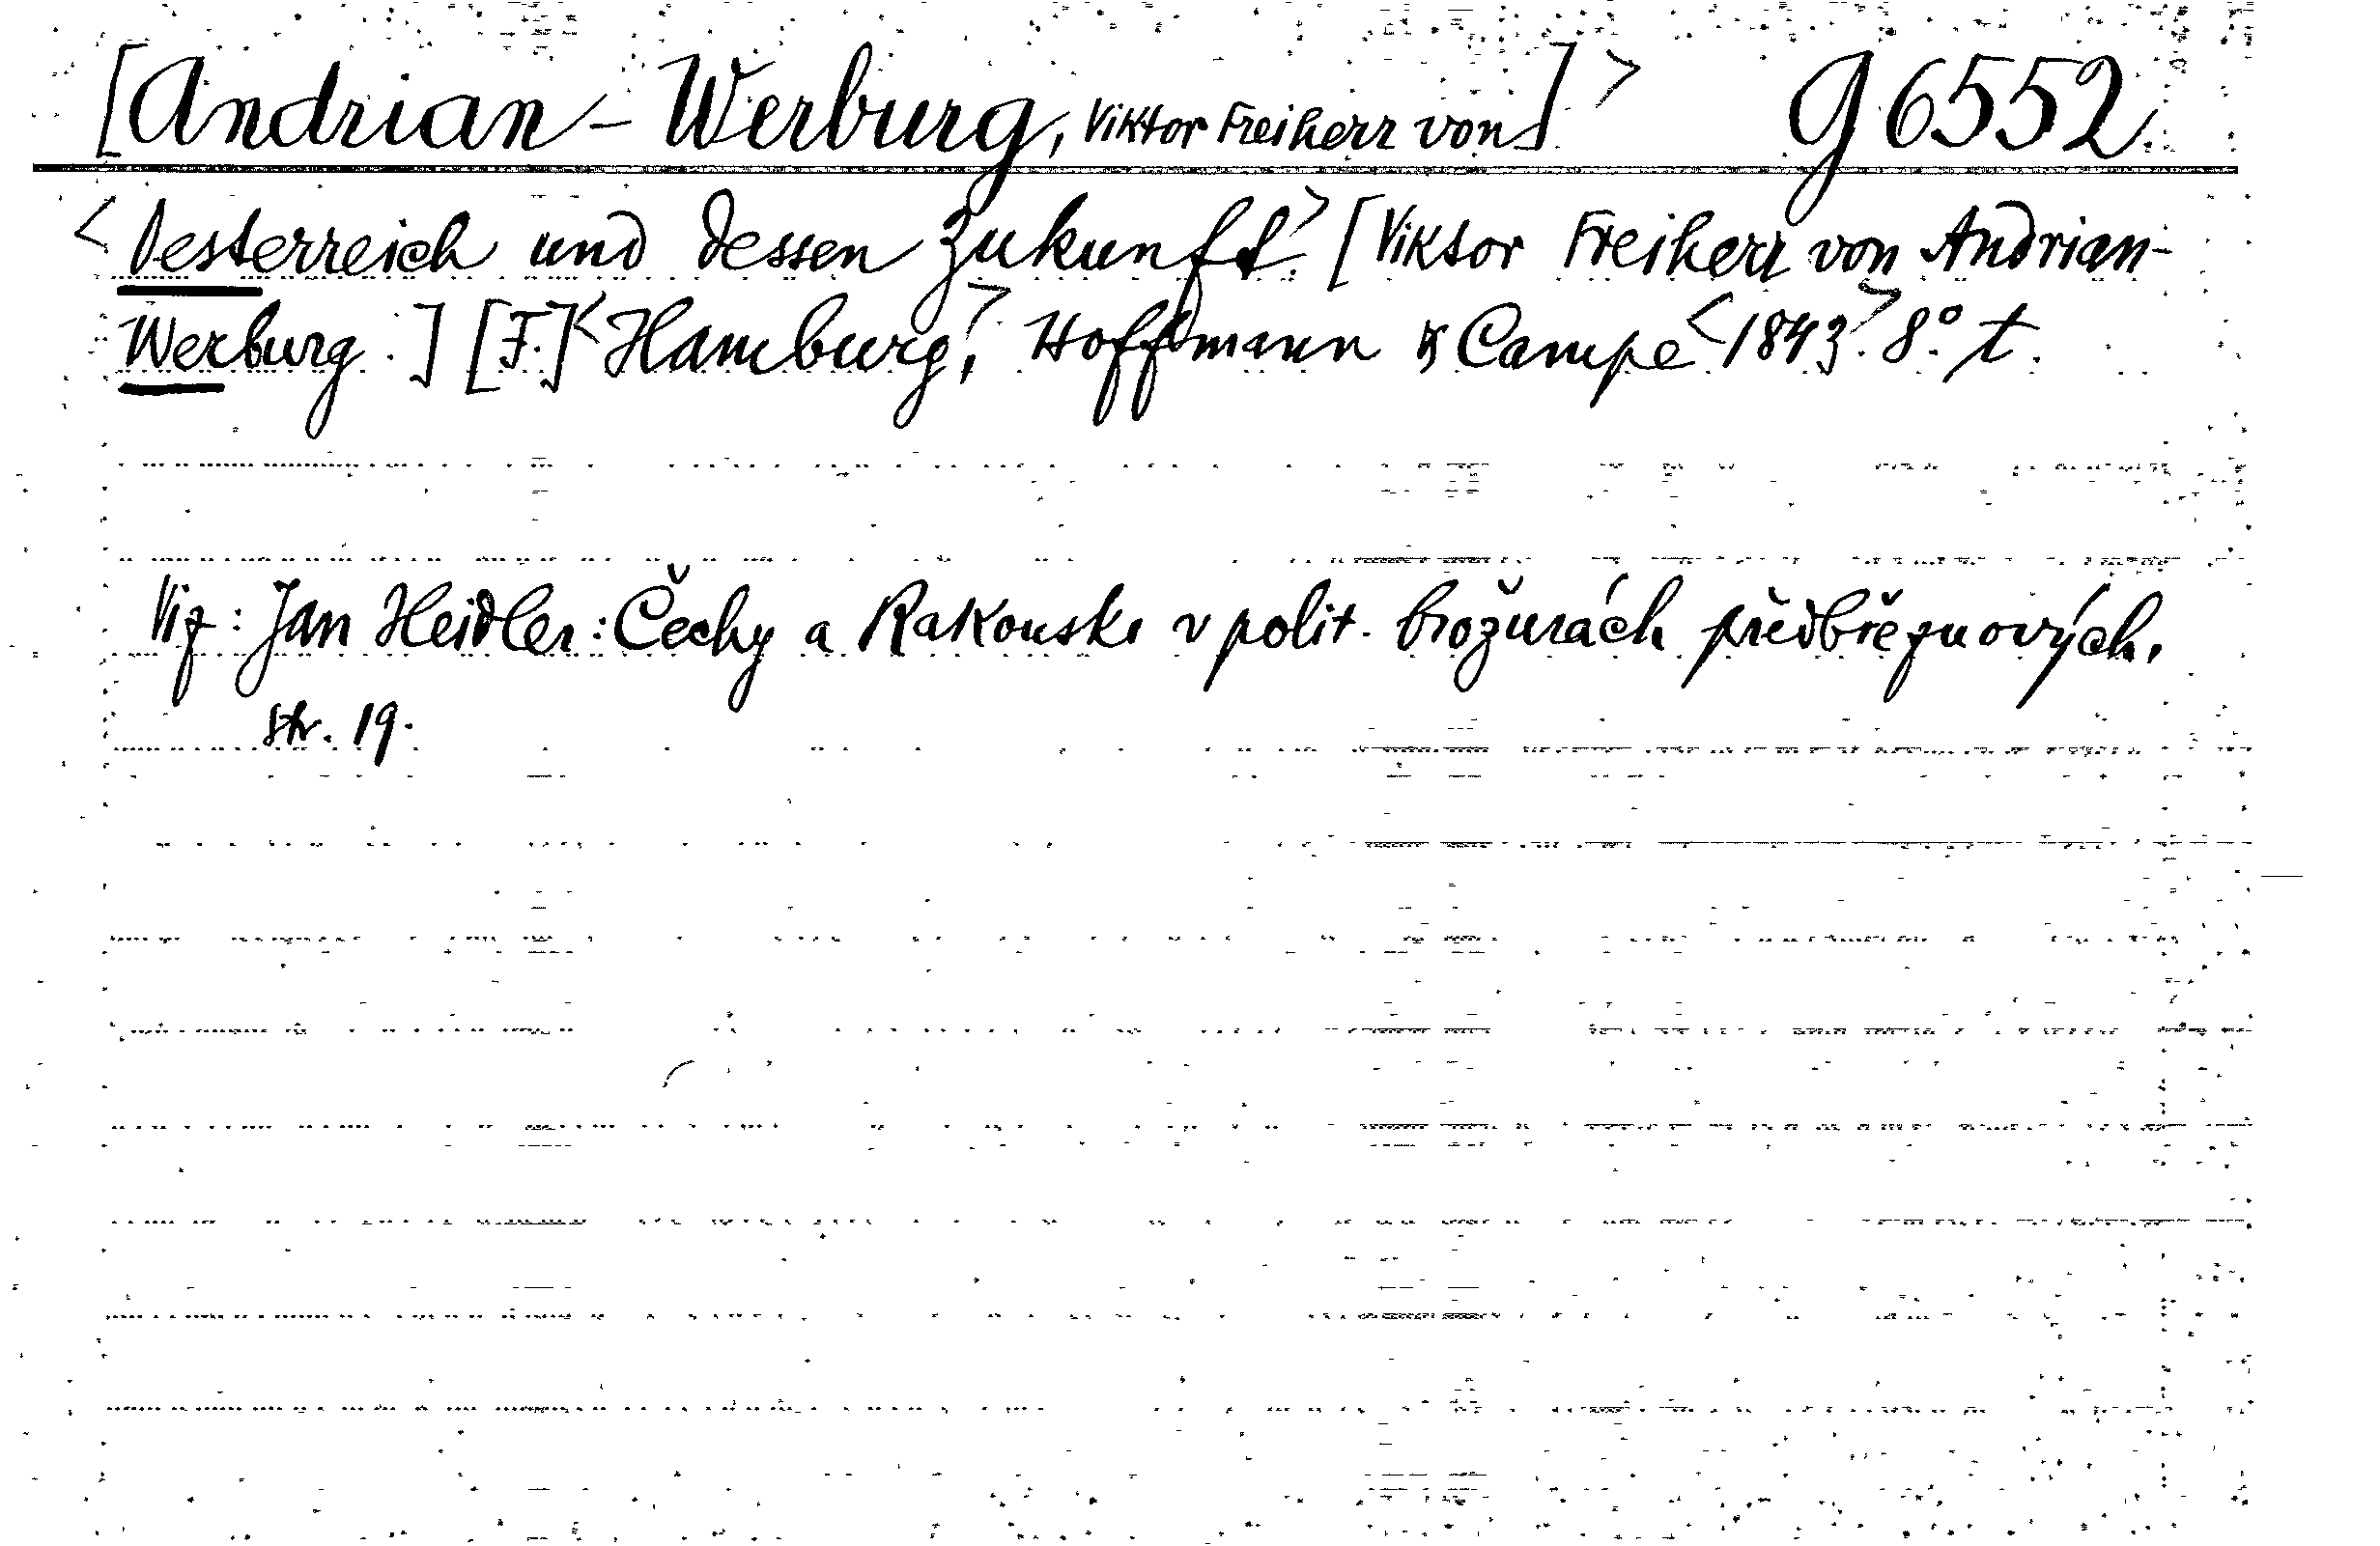 [Andrian-Werburg, Viktor Freiherr von] > g 6552
<Oesterreich und dessen Zukunft.> [Viktor Freiherr von Andrian-
Werburg.] [F.] <Hamburg,> Hoffmann & Campe <1843.> 8° t.
Viz: Jan Heidler: Čechy a Rakousko v polit. brožurách předbřeznových,
str. 19.